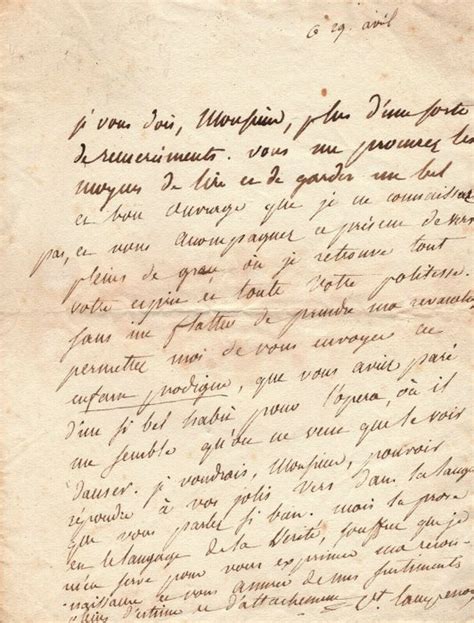 ce 29. avril
je vous dois, Monsieur, plus d'une sorte
de remerciments. vous me procurez les
moyens de lire et de garder un bel
et bon ouvrage que je ne connaissais
pas, et vous acompagnez ce présent de vers
pleins de grace, où je retrouve tout
votre esprit et toute votre politesse.
sans me flatter de prendre ma revanche
permettez moi de vous envoyer ce
enfant prodigue, que vous aviez paré
d'un si bel habit pour l'opera, où il
me semble qu'on ne veut que le voir
danser. je voudrais, Monsieur, pouvoir
répondre à vos jolis vers dans la langue
que vous parlez si bien. mais la prose
est le langage de la vérité, souffrez que je
m'en serve pour vous exprimer ma recon-
naissance et vous assurer de mes sentiments
pleins d'estime et d'attachement